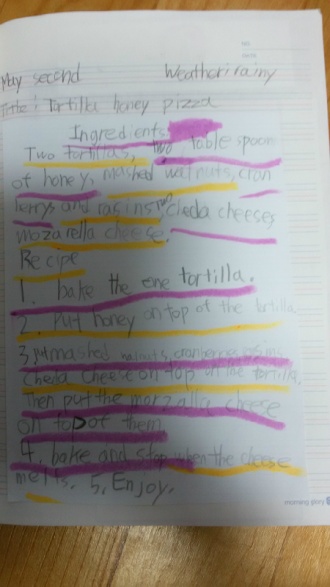 May second Weather: rainy
Title: Tortilla honey pizza
Ingredients
Two tortillas, two table spoon
of honey, mashed walnuts, cran
berrys and rasins, cheda cheeses
mozarella cheese.
Recipe
1. bake the one tortilla.
2. Put honey on top of the tortilla.
3. put mashed walnuts, cranberries,
cheda cheese on top on the tortilla.
Then put the morzalla cheese
on top of them.
4. bake and stop when the cheese
melts. 5. Enjoy.
morning glory